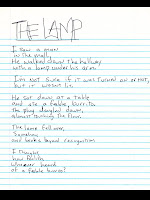 THE LAMP
I saw a man
in the malls,
He walked down the hallway
with a lamp under his arm.
I'm not sure if it was turned on or not,
but it wasn't lit.
He sat down at a table
and ate a fable, burrito.
The plug dangled down,
almost touching the floor.
The lamp fell over,
Somehow,
and broke beyond recognition.
I thought,
how
whoever heard
of a fable burrito?